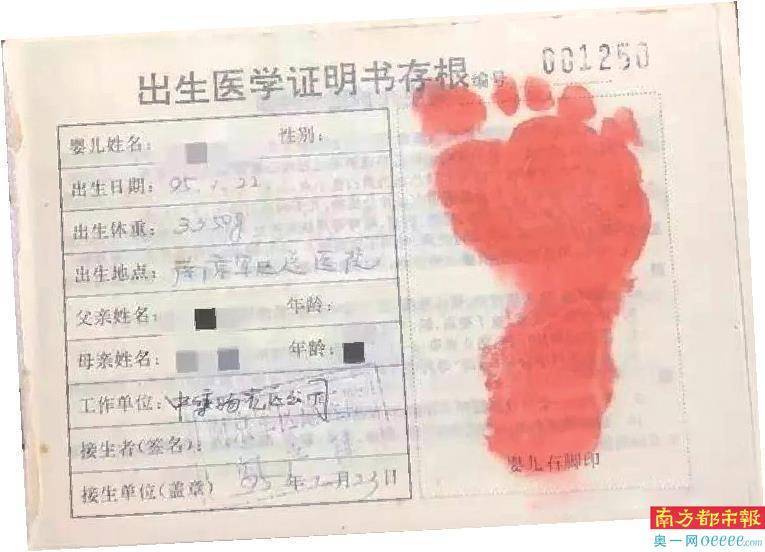 出生医学证明书存根 编号 001250
婴儿姓名： 性别：
出生日期：95.1.22
出生体重：3350g
出生地点：军区总医院
父亲姓名： 年龄：
母亲姓名： 年龄：
工作单位：公司
接生者(签名)：
接生单位(盖章) 95年1月23日
婴儿右脚印
南方都市報
奥一网oeeee.com